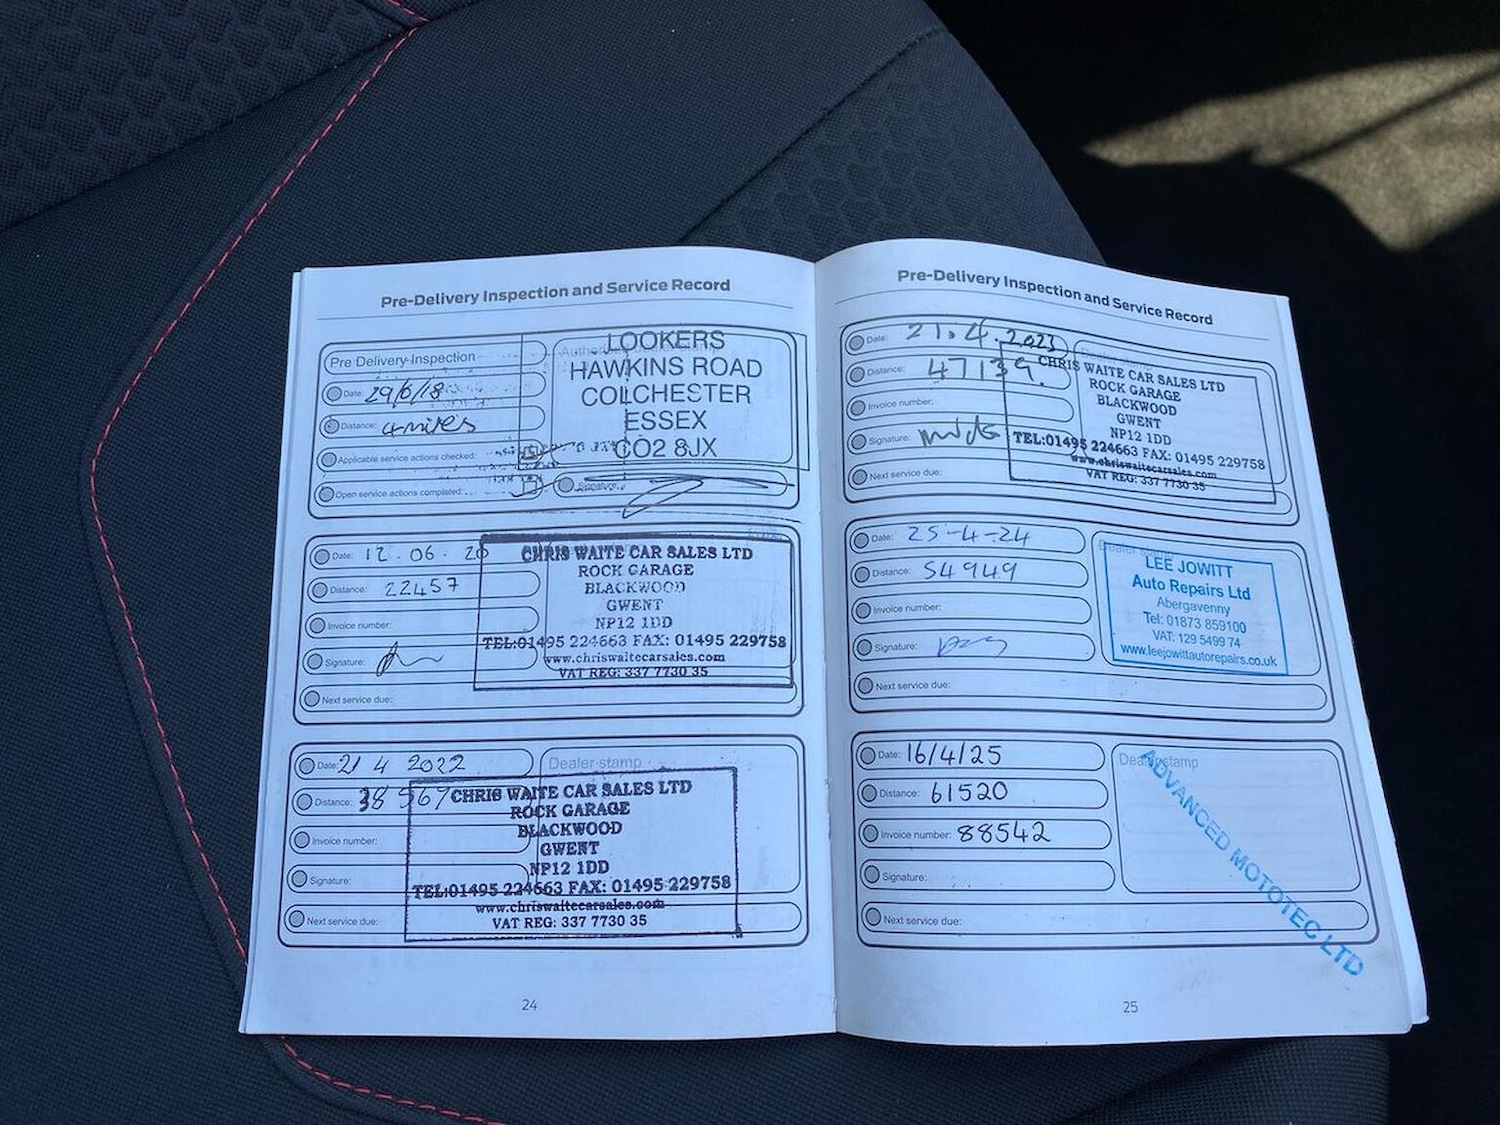 Pre-Delivery Inspection and Service Record
Pre Delivery Inspection
Date: 29/6/18
Distance: 4 miles
Applicable service actions checked:
Open service actions completed:
LOOKERS
HAWKINS ROAD
COLCHESTER
ESSEX
CO2 8JX
Signature:
Date: 12.06.20
Distance: 22457
Invoice number:
Signature:
Next service due:
CHRIS WAITE CAR SALES LTD
ROCK GARAGE
BLACKWOOD
GWENT
NP12 1DD
TEL:01495 224663 FAX: 01495 229758
www.chriswaitecarsales.com
VAT REG: 337 7730 35
Date: 21 4 2022
Distance: 38567
Invoice number:
Signature:
Next service due:
Dealer stamp
CHRIS WAITE CAR SALES LTD
ROCK GARAGE
BLACKWOOD
GWENT
NP12 1DD
TEL:01495 224663 FAX: 01495 229758
www.chriswaitecarsales.com
VAT REG: 337 7730 35
24
Pre-Delivery Inspection and Service Record
Date: 21.4.2023
Distance: 47139.
Invoice number:
Signature:
Next service due:
CHRIS WAITE CAR SALES LTD
ROCK GARAGE
BLACKWOOD
GWENT
NP12 1DD
TEL:01495 224663 FAX: 01495 229758
www.chriswaitecarsales.com
VAT REG: 337 7730 35
Date: 25-4-24
Distance: 54949
Invoice number:
Signature:
Next service due:
Dealer stamp
LEE JOWITT
Auto Repairs Ltd
Abergavenny
Tel: 01873 859100
VAT: 129 5499 74
www.leejowittautorepairs.co.uk
Date: 16/4/25
Distance: 61520
Invoice number: 88542
Signature:
Next service due:
Dealer stamp
ADVANCED MOTOTEC LTD
25